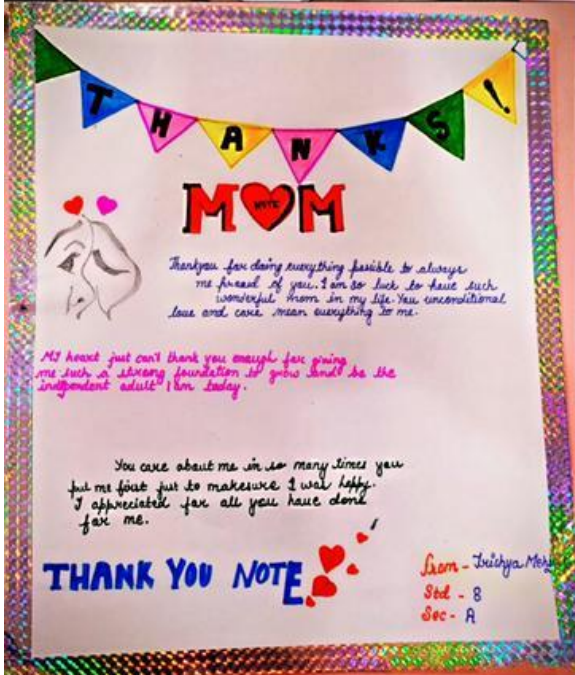 THANKS!
MOM
NOTE
Thankyou for doing everything possible to always
me proud of you. I am so luck to have such
wonderful mom in my life. You unconditional
love and care mean everything to me.
MY heart just can't thank you enough for giving
me such a strong foundation to grow and be the
independent adult I am today.
You care about me in so many times you
put me first just to makesure I was happy.
I appreciated for all you have done
for me.
THANK YOU NOTE
From - Trichya
Std - 8
Sec - A